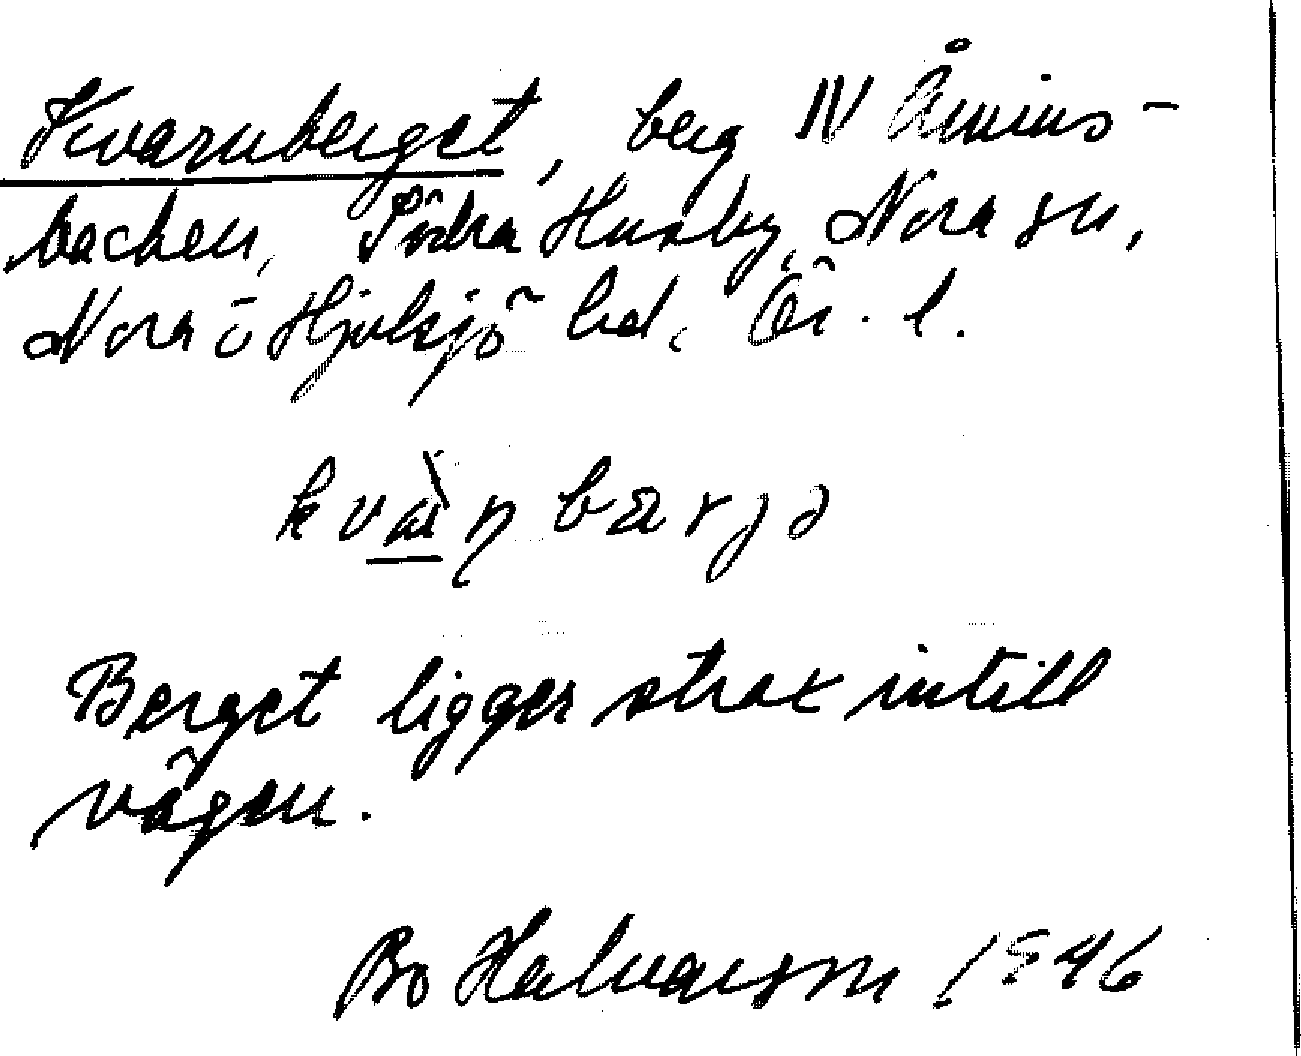 Kvarnberget, berg NV Åmins-
backen, Södra Husby, Nora sn,
Nora o Hjulsjö bd, Ör. l.
kvà̱ɳbærjə
Berget ligger strax intill
vägen.
Bo Halvarson 1946